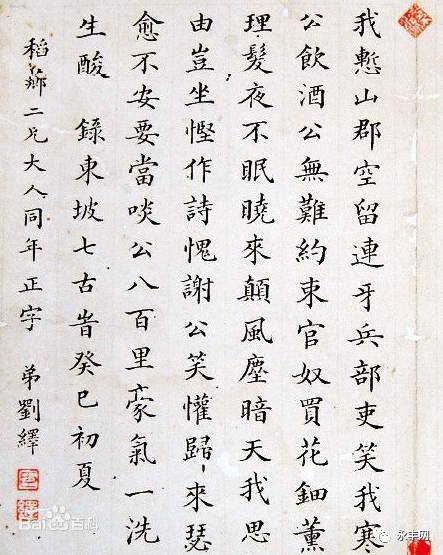 我慙山郡空留連牙兵部吏笑我寒
公飲酒公無難約束官奴買花鈿薰
理髮夜不眠曉來顛風塵暗天我思
由豈坐慳作詩愧謝公笑懽歸來瑟
愈不安要當啖公八百里豪氣一洗
生酸 錄東坡七古旹癸巳初夏
稻薌二兄大人同年正字 弟劉繹
Bai百科
永丰网